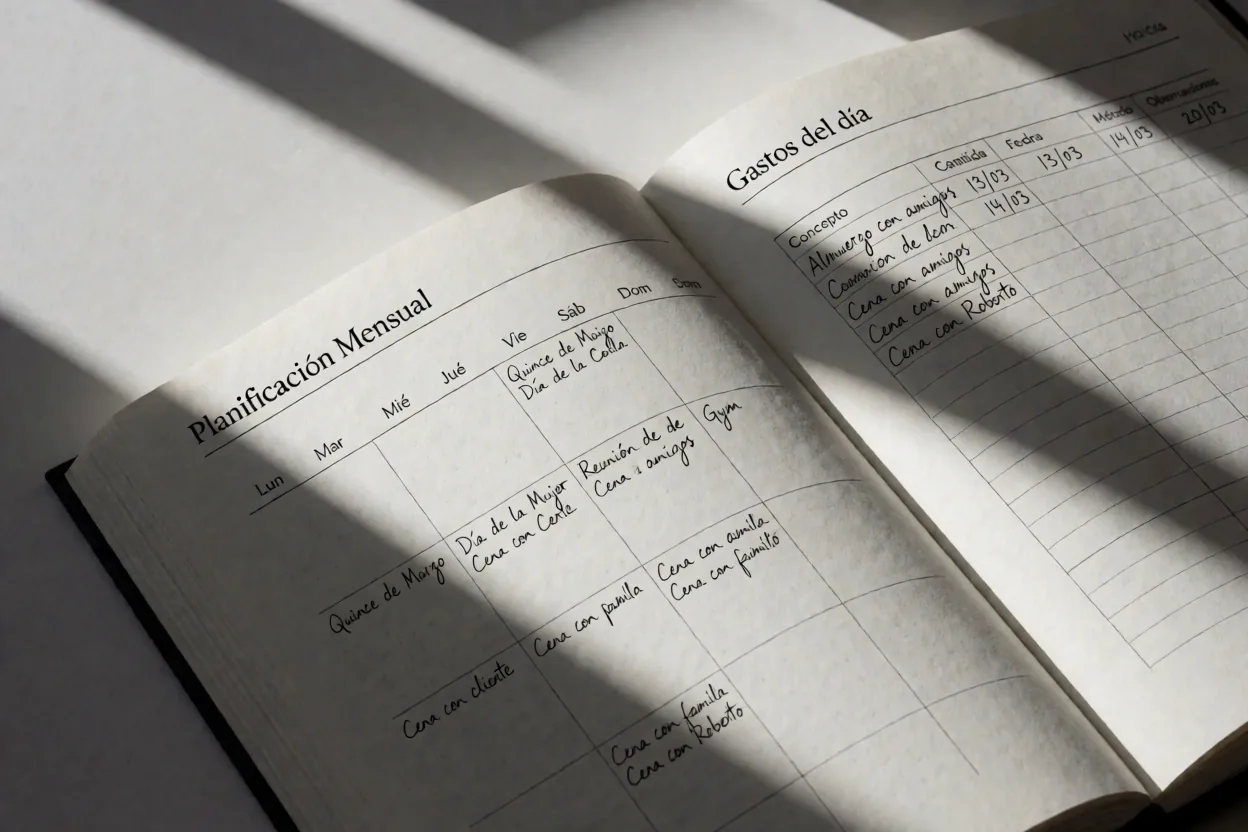 Planificación Mensual
Lun Mar Mié Jué Vie Sáb Dom Dom
Quince de Maizo
Día de la Coila
Quince de Marzo
Día de la Mujer
Cena con
Reunión de de
Cena amigos
Gym
Cena con cliente
Cena con pamila
Cena con amilla
Cena con
Cena con famila
Cena con Roberto
Gastos del día
Concepto Fedra Método
Almuergo con amigos 13/03 13/03 14/03 20/03
de 14/03
Cena con amigos
Cena con amigos
Cena con Roberto